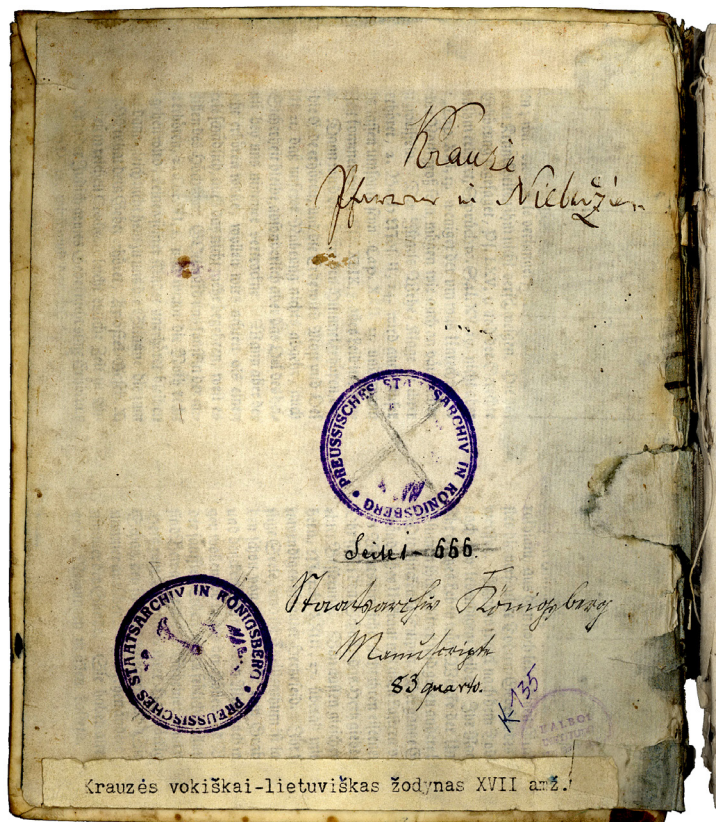 Krause
Pfarrer in
PREUSSISCHES STAATSARCHIV IN KÖNIGSBERG
Seite 1-666.
Staatsarchiv Königsberg
Manuscripte
83 quarto.
K 135
PREUSSISCHES STAATSARCHIV IN KÖNIGSBERG
KALBOS
Krauzės vokiškai-lietuviškas žodynas XVII amž.